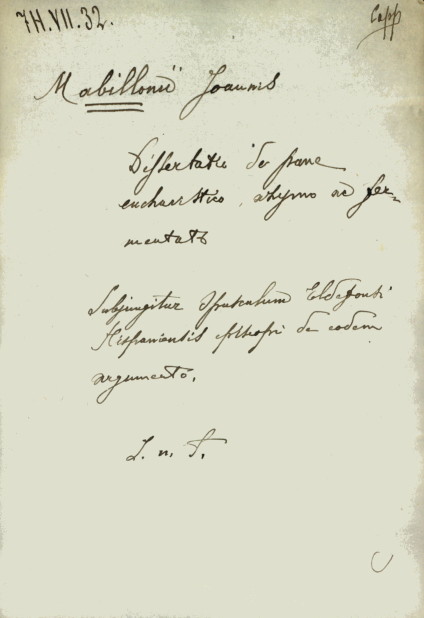 7H.VII.32.
Capp
Mabillonii Joannis
Dissertatio de pane
eucharistico, azymo ac fer-
mentato
Subjungitur Opusculum Eldefonsi
Hispaniensis episcopi de eodem
argumento.